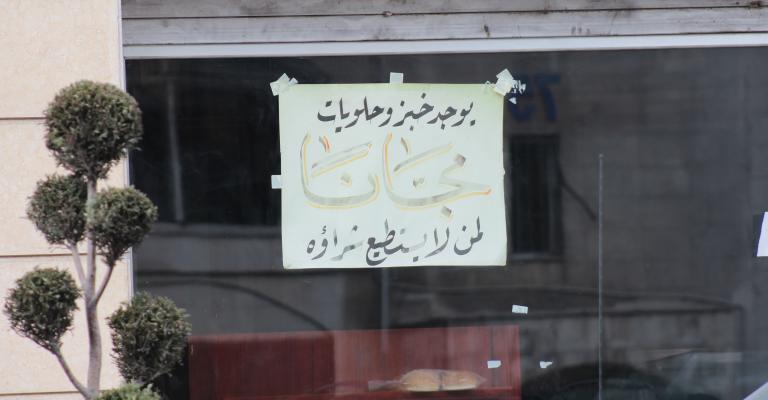 يوجد خبز وحلويات
مجّانًا
لمن لا يستطيع شراؤه
75